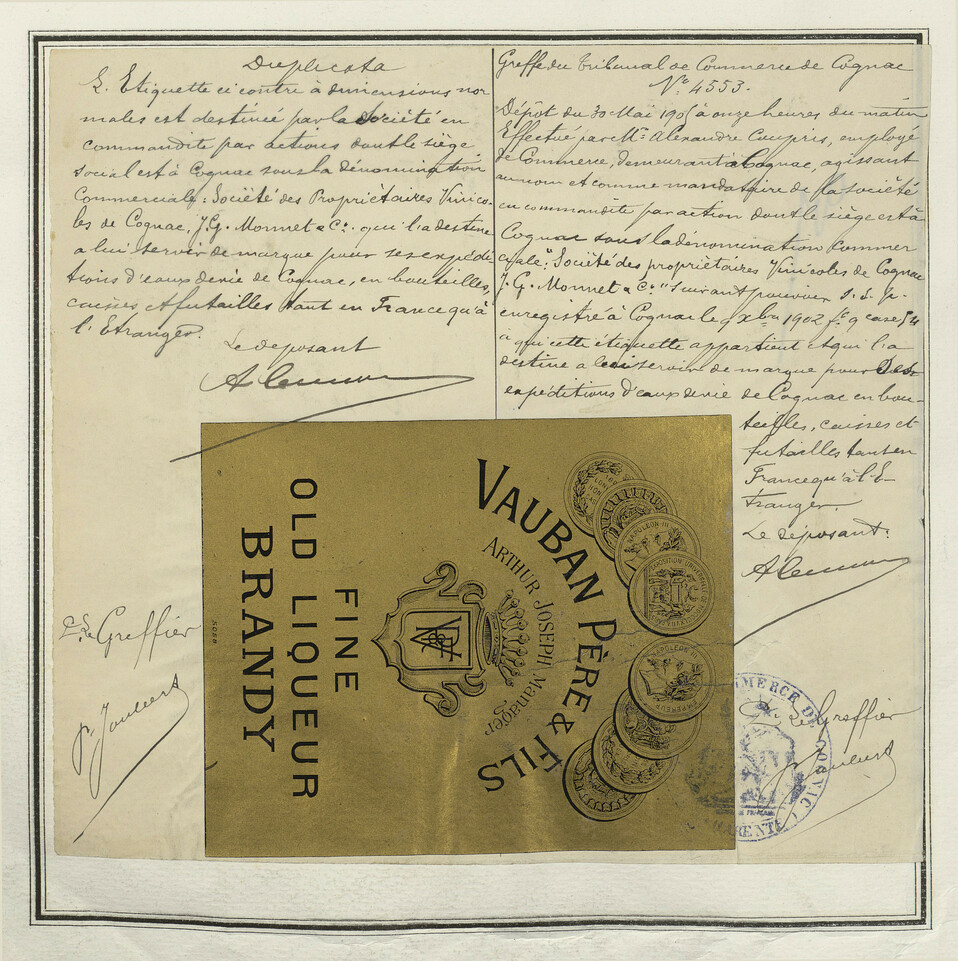 Duplicata
L'Etiquette ci contre à dimensions nor
males est destinée par la Société en
commandite par actions dont le siège
social est à Cognac sous la dénomination
Commerciale: Société des Propriétaires Vinico-
les de Cognac, J.G. Monnet & Cie. qui l'a destine
a lui servir de marque pour ses expédi-
tions d'eaux de vie de Cognac, en bouteilles,
caisses et futailles tant en France qu'à
l'Etranger.
Le deposant
Pr Le Greffier
Greffe du Tribunal de Commerce de Cognac
No. 4553.
Dépôt du 30 Mai 190 à onze heures du matin
Effectué par Mr. Alexandre, employé
de Commerce, demeurant à Cognac, agissant
au nom et comme mandataire de la société
en commandite par action dont le siège est à
Cognac sous la dénomination commer
ciale: "Société des propriétaires Vinicoles de Cognac
J.G. Monnet & Co." suivant pouvoir S. S. P.
enregistré à Cognac le 9 Xbre 1902 fo 9 case 54
à qui cette étiquette appartient et qui l'a
destine a lui servir de marque pour ses
expéditions d'eaux de vie de Cognac en bou-
teilles, caisses et
futailles tant en
France qu'à l'E-
tranger.
Le déposant:
Pr Le Greffier
VAUBAN PÈRE & FILS
ARTHUR JOSEPH Manager
FINE
OLD LIQUEUR
BRANDY
5058
NAPOLEON III
EXPOSITION UNIVERSELLE
NAPOLEON III EMPEREUR
COMMERCE DE COGNAC
CHARENTE